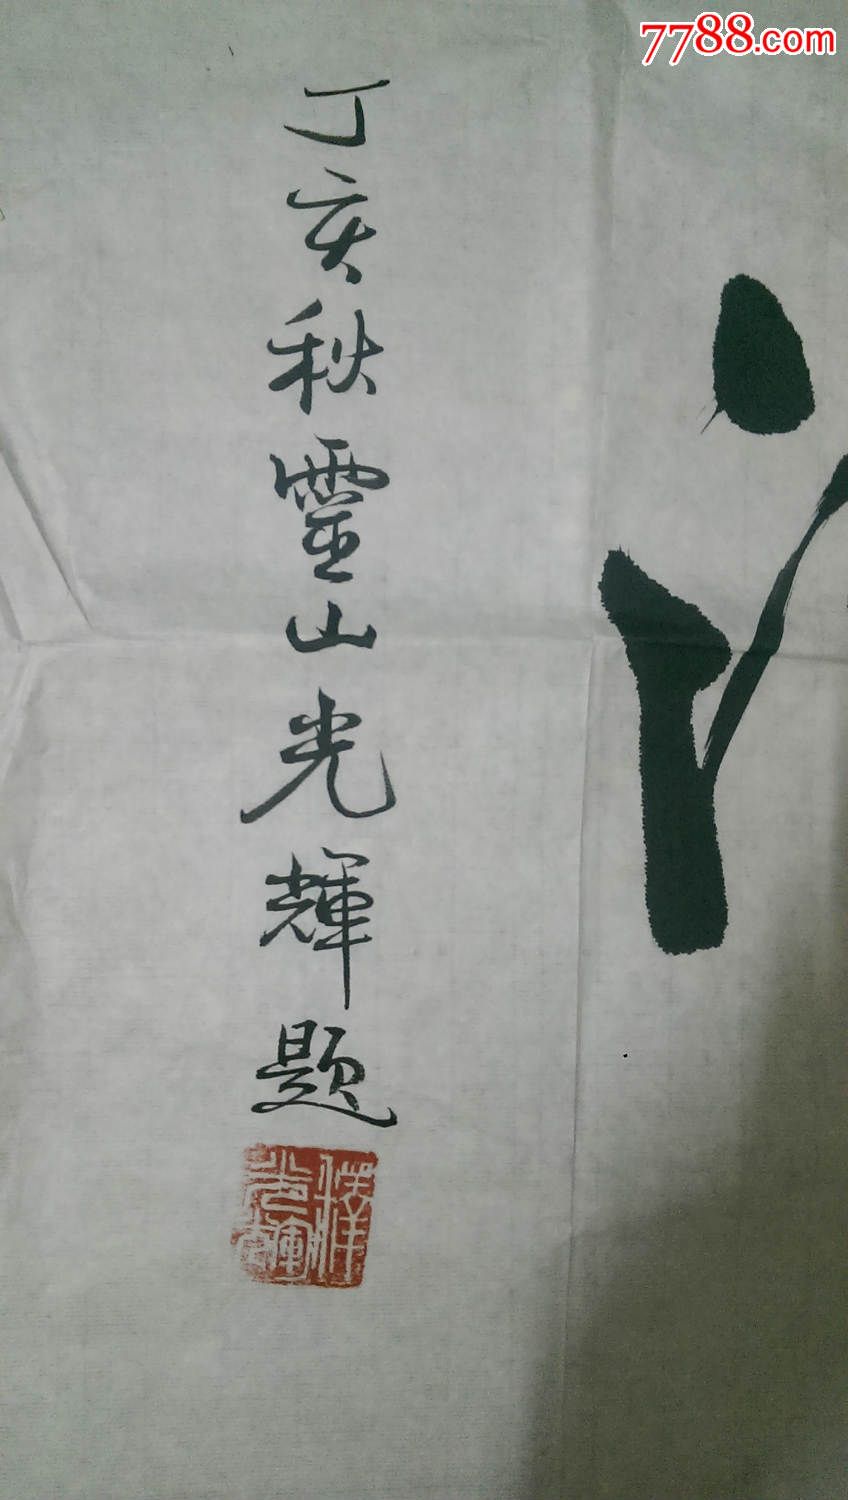 7788.com
丁亥秋靈山光輝题